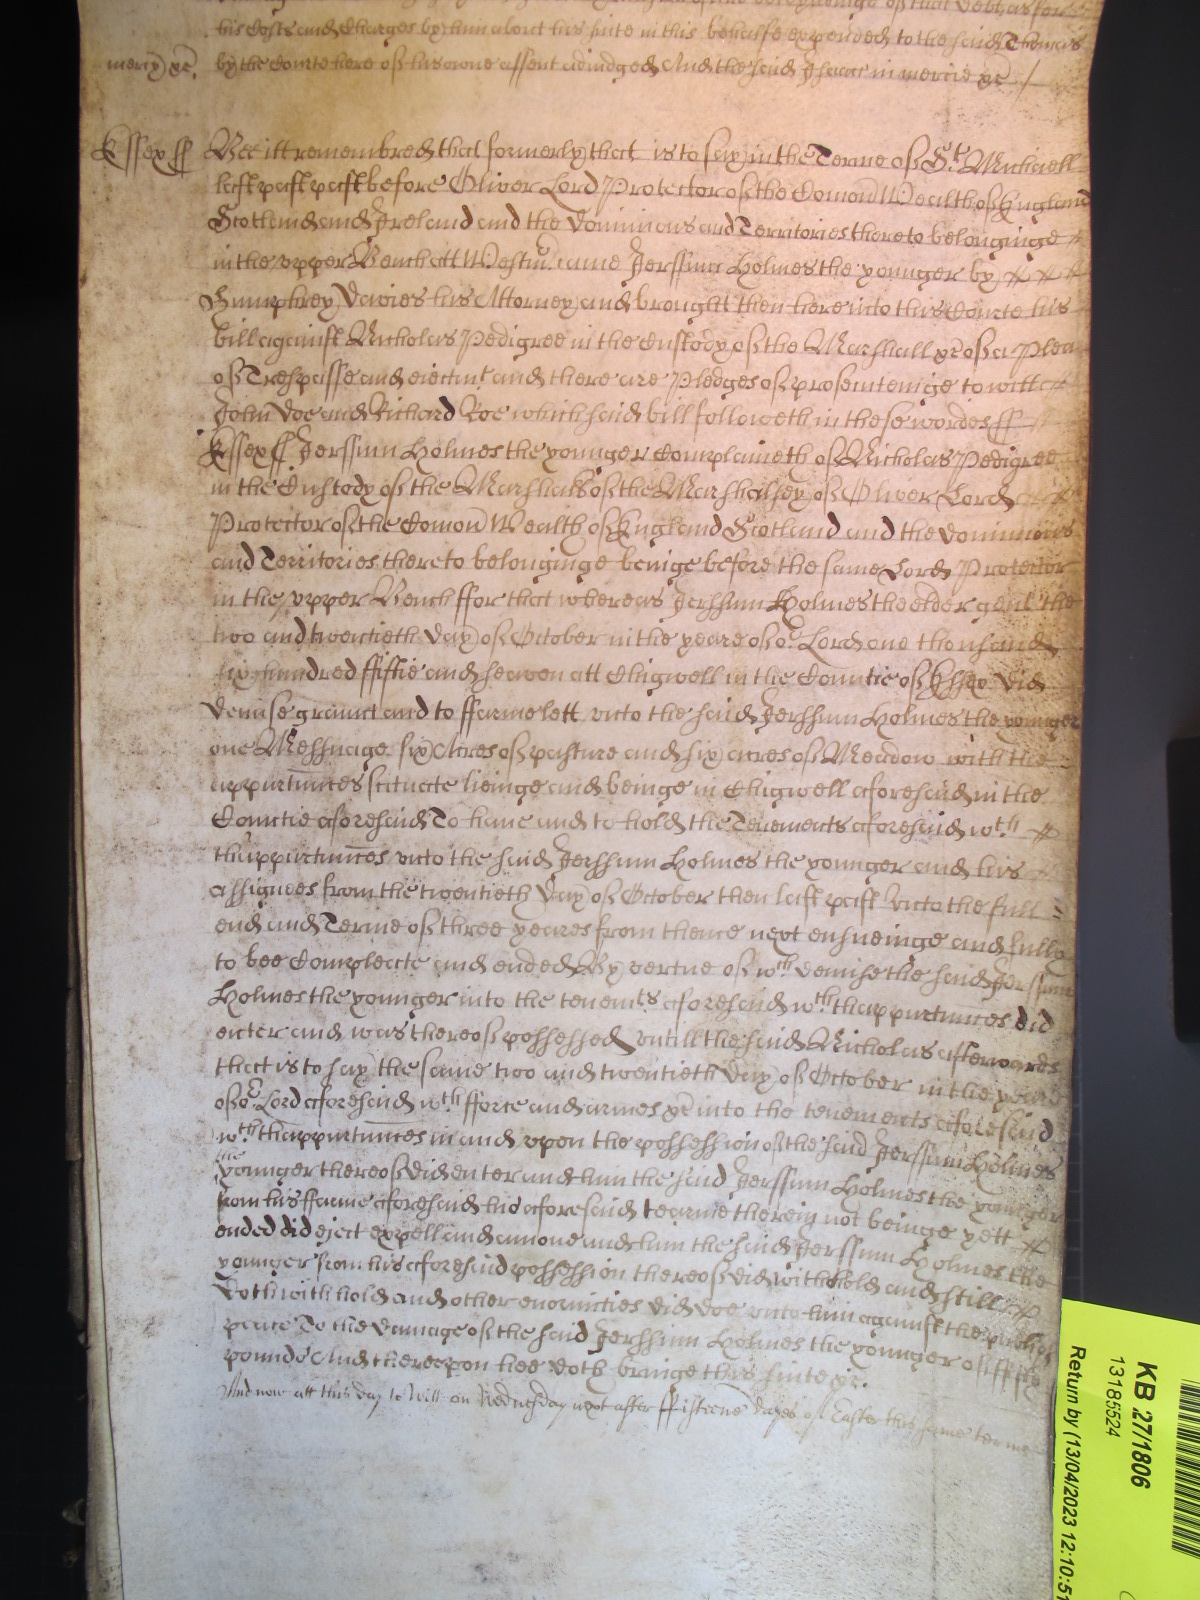 his Costs and Charges by him about his suite in this behalfe expended to the said Thomas
mercy &c. by the Courte here of his owne assent adiudged And the said Isaac in mercie &c
Essex ss Bee itt remembred that formerly that is to say in the Terme of St. Michaell
last past past before Oliver Lord Protector of the Comon Wealth of England
Scotland and Ireland and the Dominions and Territories thereto belonginge
in the upper Bench att Westm came Jerssum Holmes the younger by
Humphrey Davies his Attorney and brought then here into this Courte his
bill against Nicholas Pedigree in the Custody of the Marshall &c of a Plea
of Trespasse and eiectmt and there are Pledges of prosecutinge to witt
John Doe and Richard Roe which said bill followeth in these wordes ss
Essex ss Jerssum Holmes the younger Complaineth of Nicholas Pedigree
in the Custody of the Marshall of the Marshalsey of Oliver Lord
Protector of the Comon Wealth of England Scotland and the Dominions
and Territories thereto belonginge beinge before the same Lord Protector
in the upper Bench ffor that whereas Jersshum Holmes the elder gent the
two and twentieth day of October in the yeare of or. Lord one thousand
six hundred ffiftie and seaven att Chigwell in the Countie of Essex did
demise graunt and to ffarme lett unto the said Jersshum Holmes the younger
one Messuage six Acres of pasture and six acres of Meadow with the
appurtunces scituate lieinge and beinge in Chigwell aforesaid in the
Countie aforesaid To have and to hold the Tenements aforesaid wth.
thappurtunces unto the said Jersshum Holmes the younger and his
assignees from the twentieth day of October then last past unto the full
end and Terme of three yeares from thence next ensueinge and fully
to bee Compleate and ended By vertue of wth demise the said Jerssum
Holmes the younger into the tenemts aforesaid wth. thappurtunces did
enter and was thereof possessed untill the said Nicholas afterwards
that is to say the same two and twentieth day of October in the yeare
of or. Lord aforesaid wth. fforce and armes &c into the tenements aforesaid
wth. thappurtunces in and upon the possession of the said Jerssum Holmes
the younger thereof did enter and him the said Jerssum Holmes the younger
from his ffarme aforesaid his aforesaid tearme therein not beinge yett
ended did eject expell and amove and him the said Jerssum Holmes the
younger from his aforesaid possession thereof did withhold and still
doth withhold and other enormities did doe unto him against the publiq
peace To the damage of the said Jersshum Holmes the younger of ffifty
pounds And thereupon hee doth bringe this suite &c.
And now att this day to Witt on Wednesday next after ffifteene dayes of Easter this same terme
KB 27/1806
13185524
Return by (13/04/2023 12:10:51